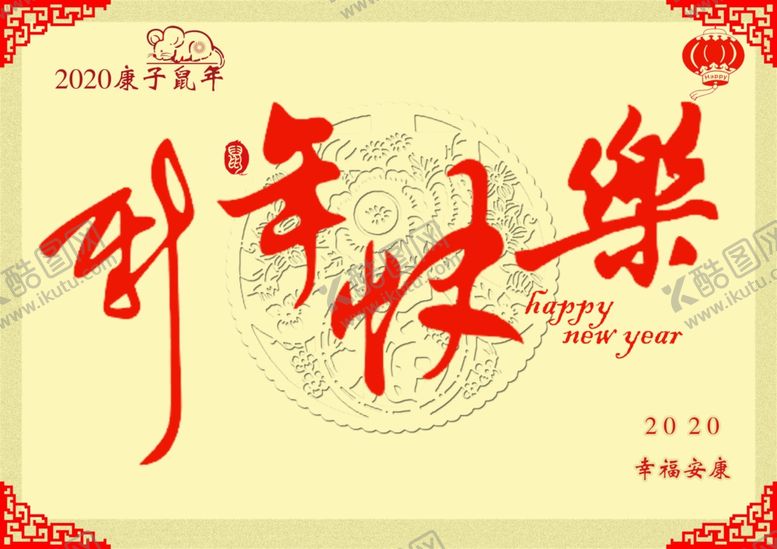 2020康子鼠年
鼠
Happy
新年快樂
happy
new year
2020
幸福安康
酷图网
www.ikutu.com